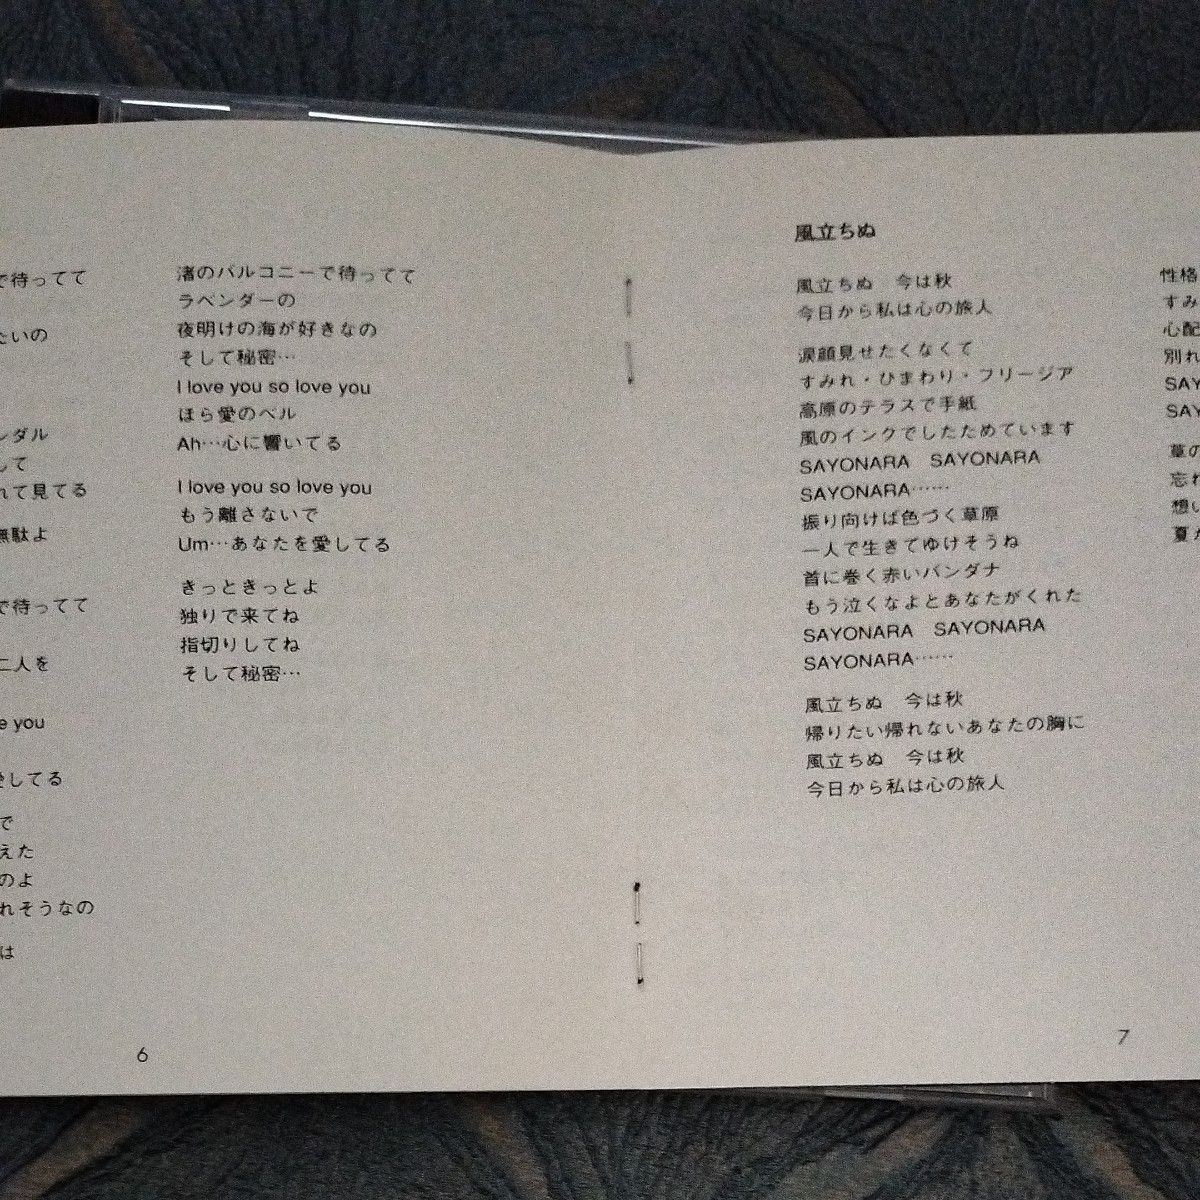 で待ってて
たいの
ンダル
して
れて見てる
無駄よ
で待ってて
二人を
e you
愛してる
で
えた
のよ
れそうなの
は
渚のバルコニーで待ってて
ラベンダーの
夜明けの海が好きなの
そして秘密…
I love you so love you
ほら愛のベル
Ah…心に響いてる
I love you so love you
もう離さないで
Um…あなたを愛してる
きっときっとよ
独りで来てね
指切りしてね
そして秘密…
6
風立ちぬ
風立ちぬ　今は秋
今日から私は心の旅人
涙顔見せたくなくて
すみれ・ひまわり・フリージア
高原のテラスで手紙
風のインクでしたためています
SAYONARA　SAYONARA
SAYONARA……
振り向けば色づく草原
一人で生きてゆけそうね
首に巻く赤いバンダナ
もう泣くなよとあなたがくれた
SAYONARA　SAYONARA
SAYONARA……
風立ちぬ　今は秋
帰りたい帰れないあなたの胸に
風立ちぬ　今は秋
今日から私は心の旅人
性格
すみ
心配
別れ
SAY
SAY
草の
忘れ
想い
夏か
7